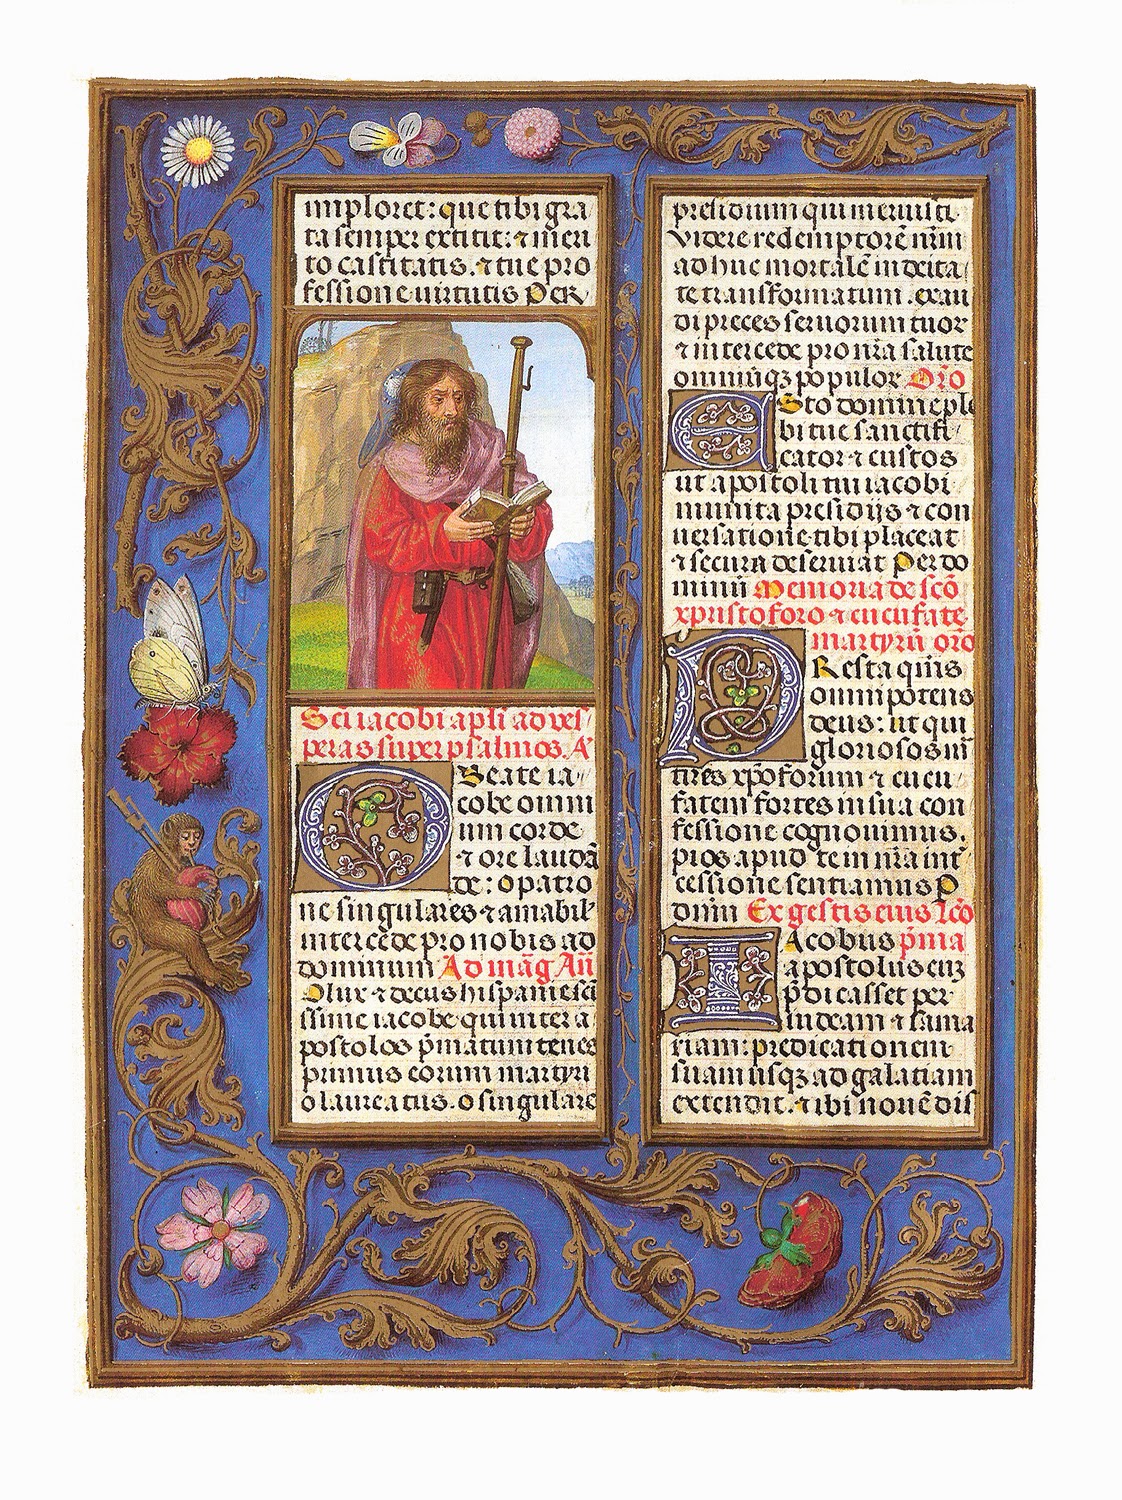 imploret: que tibi gra
ta semper extitit: ⁊ meri
to castitatis. ⁊ tue pro
fessione uirtutis Per
Scī iacobi apłi ad ves
peras super psalmos. A
O Beate ia
cobe omni
um corde
⁊ ore laudā
de: o patro
ne singulares ⁊ amabil
intercede pro nobis ad
dominum Ad māg Añ
O lux ⁊ decus hispanie scī
ssime iacobe qui inter a
postolos p̄matum tenes
primus eorum martyri
o laureatus. o singulare
presidium qui meruisti
videre redemptorē nr̄m
ad huc mortalē in deita
te transformatum. exau
di preces seruorum tuor
⁊ intercede pro nr̄a salute
omniūqꝫ populor Or̄o
Esto domine ple
bi tue sanctifi
cator ⁊ custos
ut apostoli tui iacobi
munita presidijs ⁊ con
uersatione tibi placeat
⁊ secura deseruiat Per do
minū Memoria de scō
xpristoforo ⁊ cucufate
martyrū or̄o
PResta qūis
omnipotens
deus: ut qui
gloriosos m̄
tires xp̄oforum ⁊ cucu
fatem fortes in sua con
fessione cognouimus.
pios apud te in nr̄a int̄
cessione sentiamus P
dnm̄ Ex gestis eius Lcō
IAcobus p̄ma
apostolus cuꝫ
p̄dicasset per
iudeam ⁊ sama
riam: predicationem
suam usqꝫ ad galatiam
extendit. ⁊ ibi nouē dis